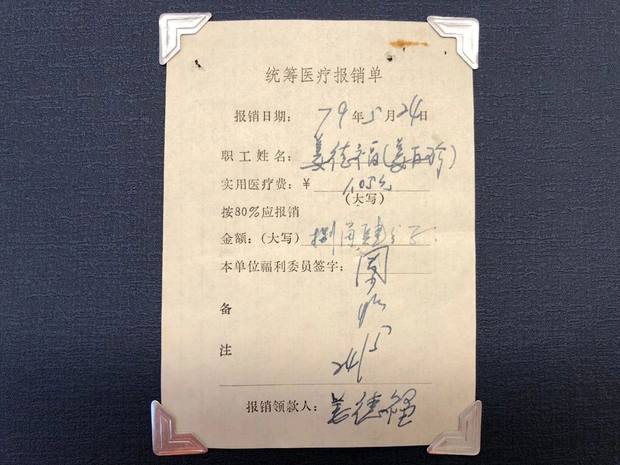 统筹医疗报销单
报销日期: 79年5月24日
职工姓名: 姜德福(姜百珍)
实用医疗费: ¥ 1.05元
(大写)
按80%应报销
金额:(大写) 捌角肆分
本单位福利委员签字:
备
注
24/5
报销领款人: 姜德福